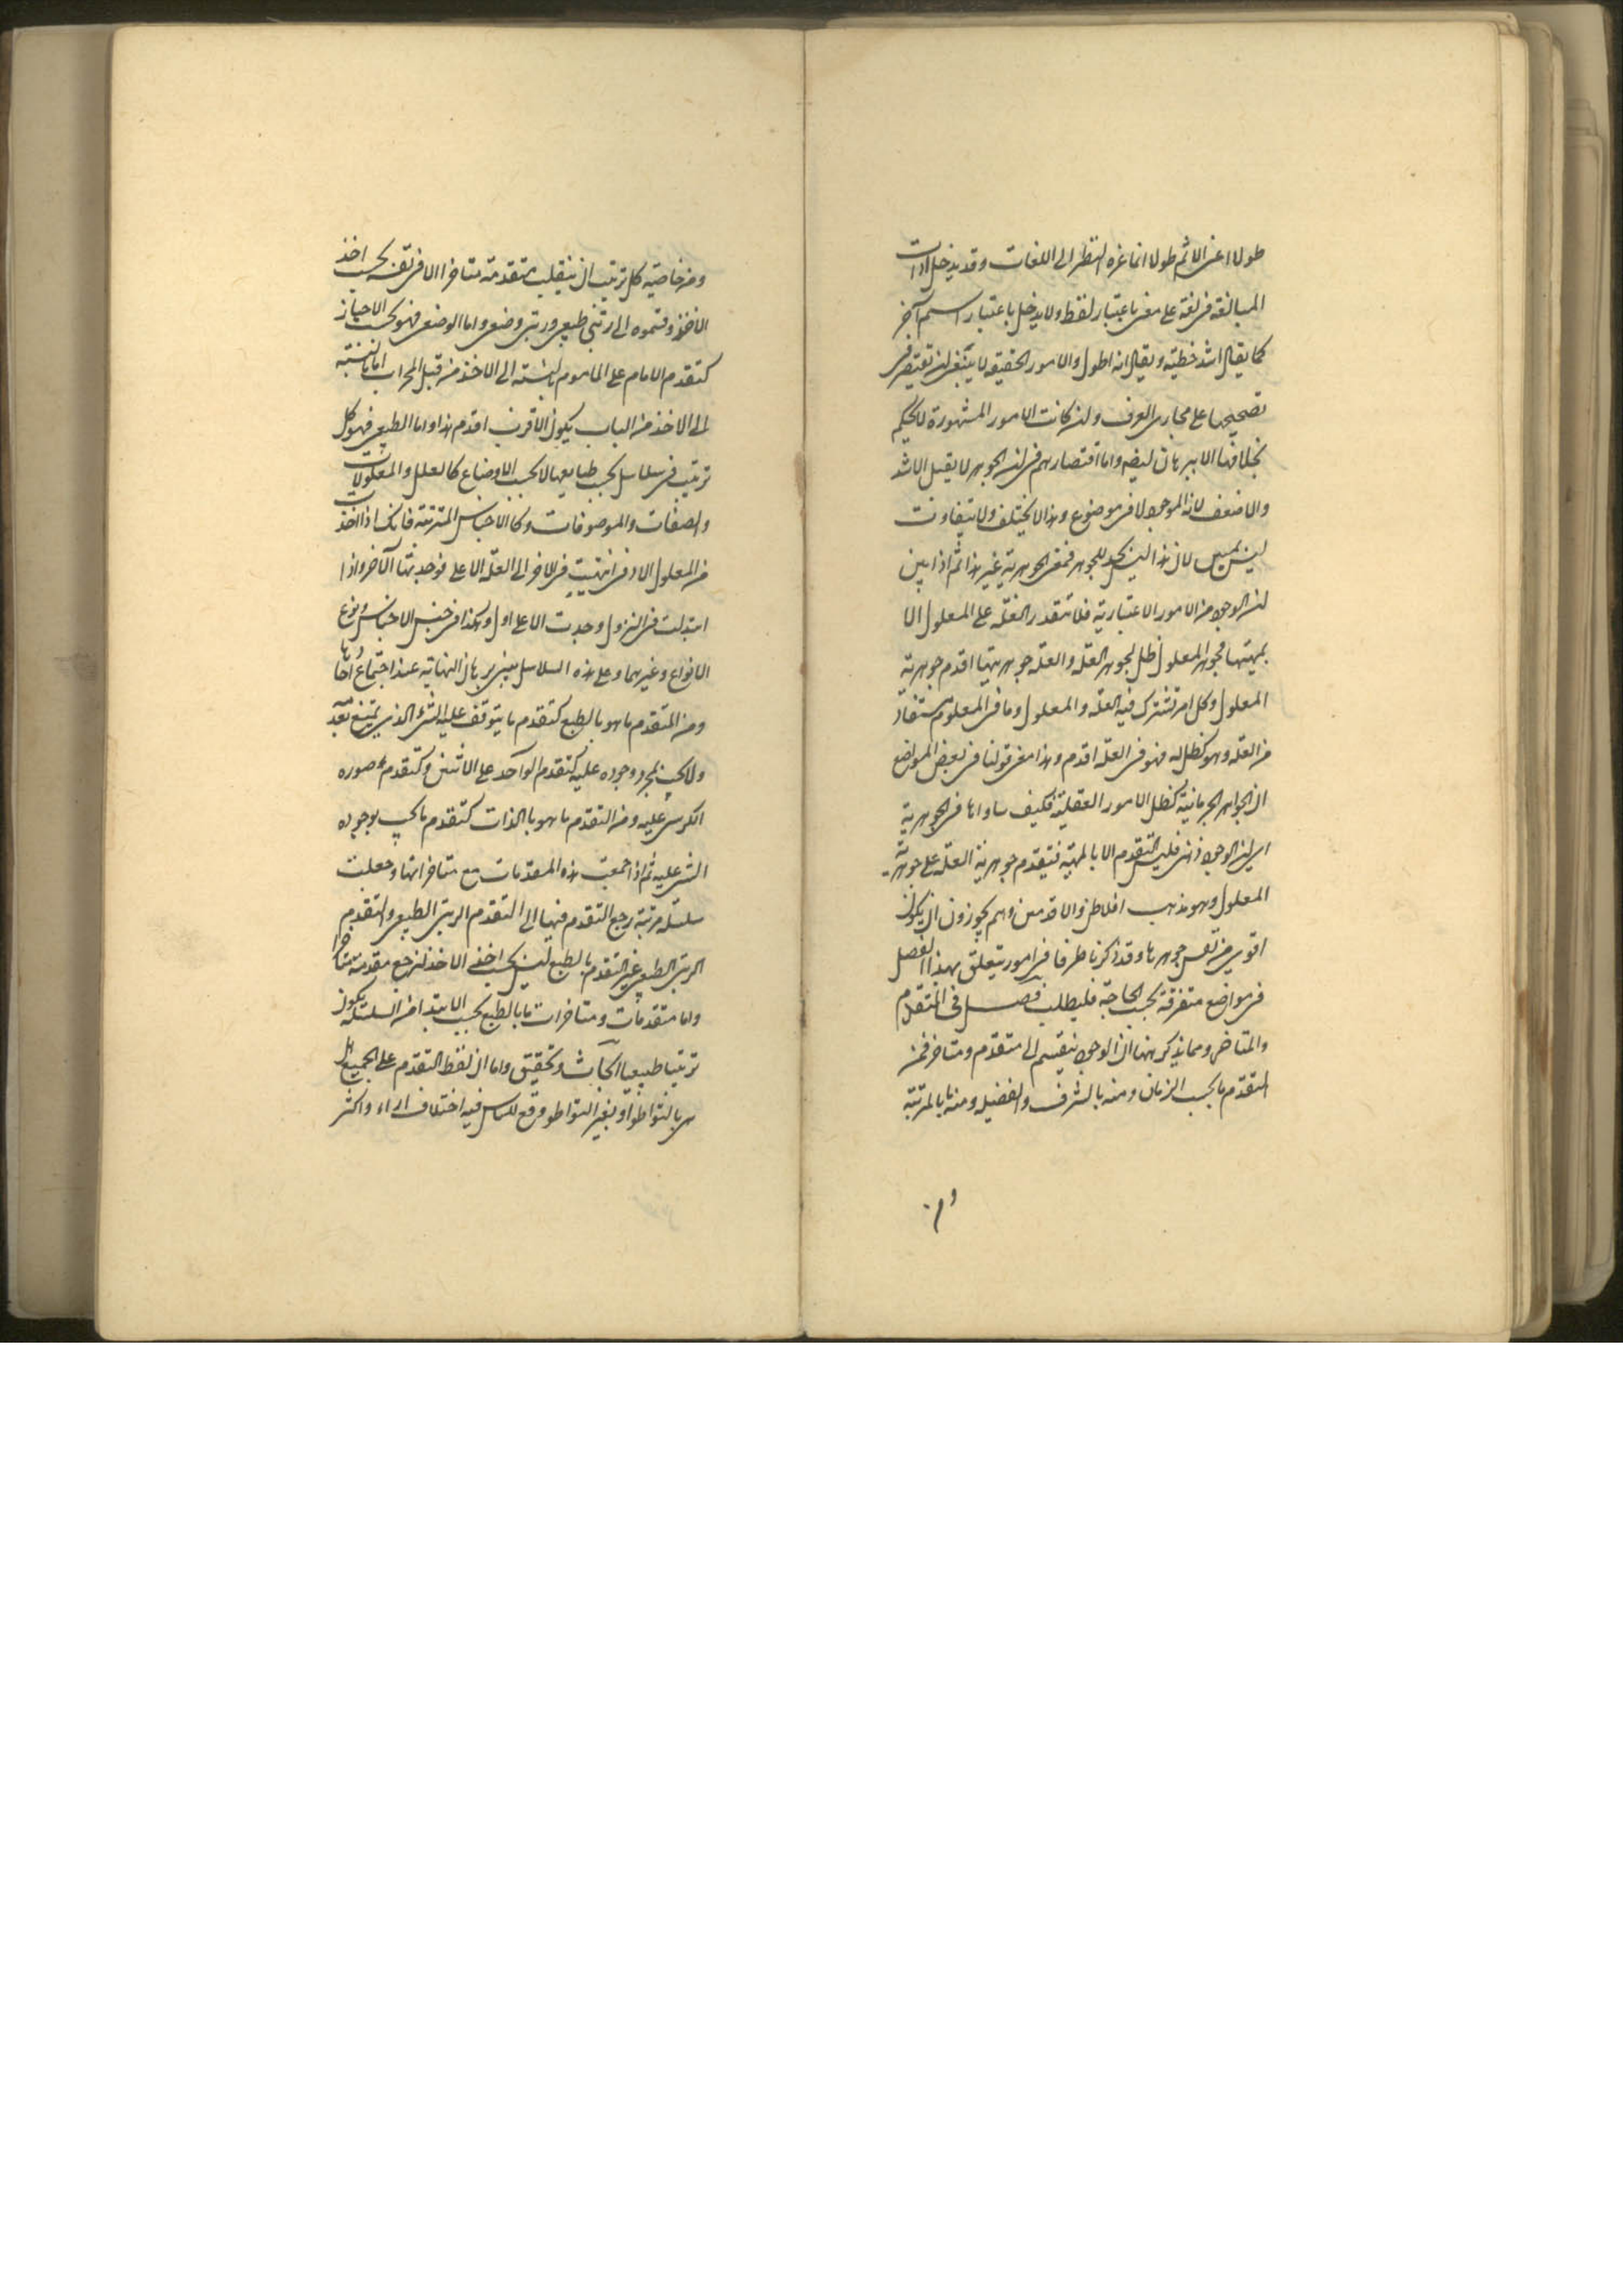 طولا اعنى الاتم طولا انما غره النظر الى اللغات وقد يدخل ادات
المبالغة فى لغة على معنى باعتبار لفظ ولا يدخل باعتبار اسم آخر
كما يقال اشد خطية ويقال انه اطول والامور الحقيقه لا يبتنى ان يقتصر فى
تصحيحها على مجارى العرف وان كانت الامور المشهورة لا يحكم
بخلافها الا ببرهان ايضا واما اقتصارهم فى ان الجوهر لا يقبل الاشد
والاضعف لانه الموجود لا فى موضوع وهذا لا يختلف ولا يتفاوت
ليس لان هذا ليس بحد للجوهر فمعنى الجوهرية غير هذا ثم اذا بين
ان الوجود من الامور الاعتبارية فلا تتقدم العلة على المعلول الا
بمهيتها فجوهر المعلول ظل لجوهر العلة والعله جوهريتها اقدم جوهرية
المعلول وكل امر تشترك فيه العلة والمعلول وما فى المعلول مستفاد
من العلة وهو كظل له فهو فى العلة اقدم وهذا معنى قولنا فى بعض المواضع
ان الجواهر الجرمانية كظل الامور العقلية فكيف ساواها فى الجوهرية
اى ان الوجود ذهنى فليس التقدم الا بالمهية فتتقدم جوهرية العلة على جوهرية
المعلول وهو مذهب افلاطن والاقدمين وهم يجوزون ان يكون
اقوى من نفس جوهرها وقد ذكرنا طرفا فى امور يتعلق بهذا الفصل
فى مواضع متفرقة بحسب الحاجة فليطلب فصل فى المتقدم
والمتاخر ومما يذكر ههنا ان الوجود ينقسم الى متقدم ومتاخر فمن
التقدم ما بحسب الزمان ومنه بالشرف والفضيلة ومنه ما بالمرتبة
ومن خاصية كل ترتيب ان ينقلب متقدمه متاخرا بحسب اخذ
الاخذ وقسموه الى رتبى طبيعى ورتبى وضعى واما الوضعى فهو بحسب الاحياز
كتقدم الامام على الماموم بالنسبة الى الاخذ من قبل المحراب اما بالنسبة
الى الاخذ من الباب يكون الاقرب اقدم هذا واما الطبيعى فهو كل
ترتيب فى سلاسل بحسب طبايعها لا بحسب الاوضاع كالعلل والمعلولات
والصفات والموصوفات وكالاجناس المترتبة فانك اذا اخذت
من المعلول الادنى انتهيت فى الاخر الى العلة الاعلى فوجدتها الآخر واذا
ابتدات فى النزول وجدت الاعلى اول وهكذا فى جنس الاجناس ونوع
الانواع وغيرهما وعلى هذه السلاسل يبنى برهان النهاية عند اجتماع احادها
ومن المتقدم ما هو بالطبع كتقدم ما يتوقف عليه الشئ الذى يمتنع بعدمه
ولا يجب بمجرد وجوده عليه كتقدم الواحد على الاثنين وكتقدم صوره
الكرسى عليه ومن التقدم ما هو بالذات كتقدم ما يجب بوجوده
الشئ عليه ثم اذا جمعت هذه المتقدمات مع متاخراتها وجعلت
سلسلة مرتبة رجع التقدم فيها الى التقدم الرتبى الطبيعى والتقدم
الرتبى الطبيعى غير المتقدم بالطبع ليس بحسب اخذ الاخذ ان يرجع متقدمه متاخرا
واما متقدمات ومتاخرات ما بالطبع بحسب الابتدا من السلسلة يكون
ترتيبا طبيعيا ابحاث وتحقيق واما ان لفظ التقدم على الجميع هل
هى بالتواطؤ او بغير التواطؤ وقع للناس فيه اختلاف اراء واكثر